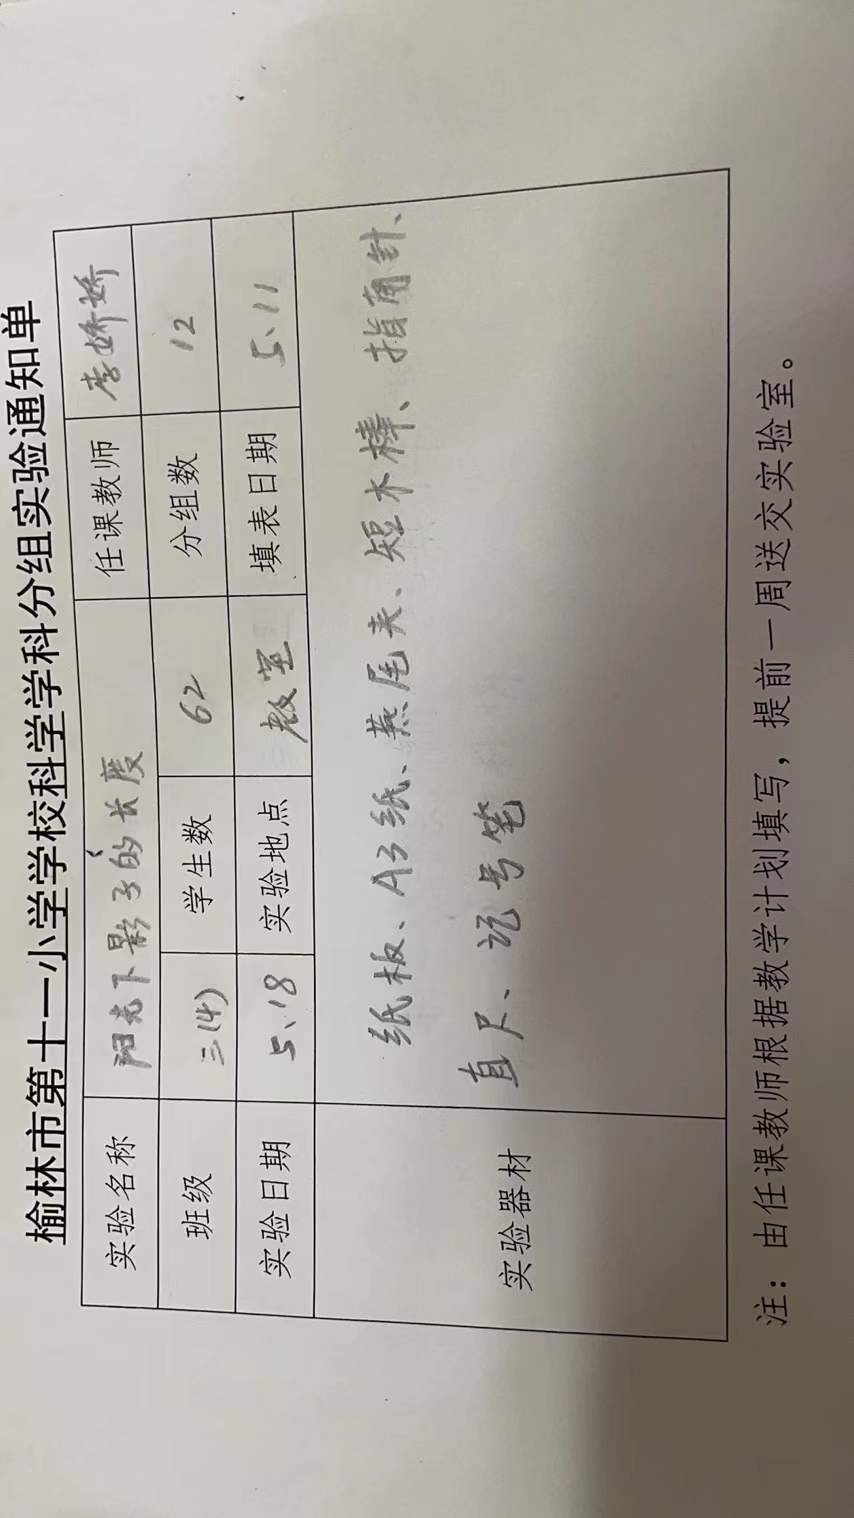 榆林市第十一小学学校科学学科分组实验通知单
实验名称 阳光下影子的长度 任课教师 李娇娇
班级 三(4) 学生数 62 分组数 12
实验日期 5、18 实验地点 教室 填表日期 5、11
实验器材 纸板、A3纸、燕尾夹、短木棒、指南针、
直尺、记号笔
注：由任课教师根据教学计划填写，提前一周送交实验室。